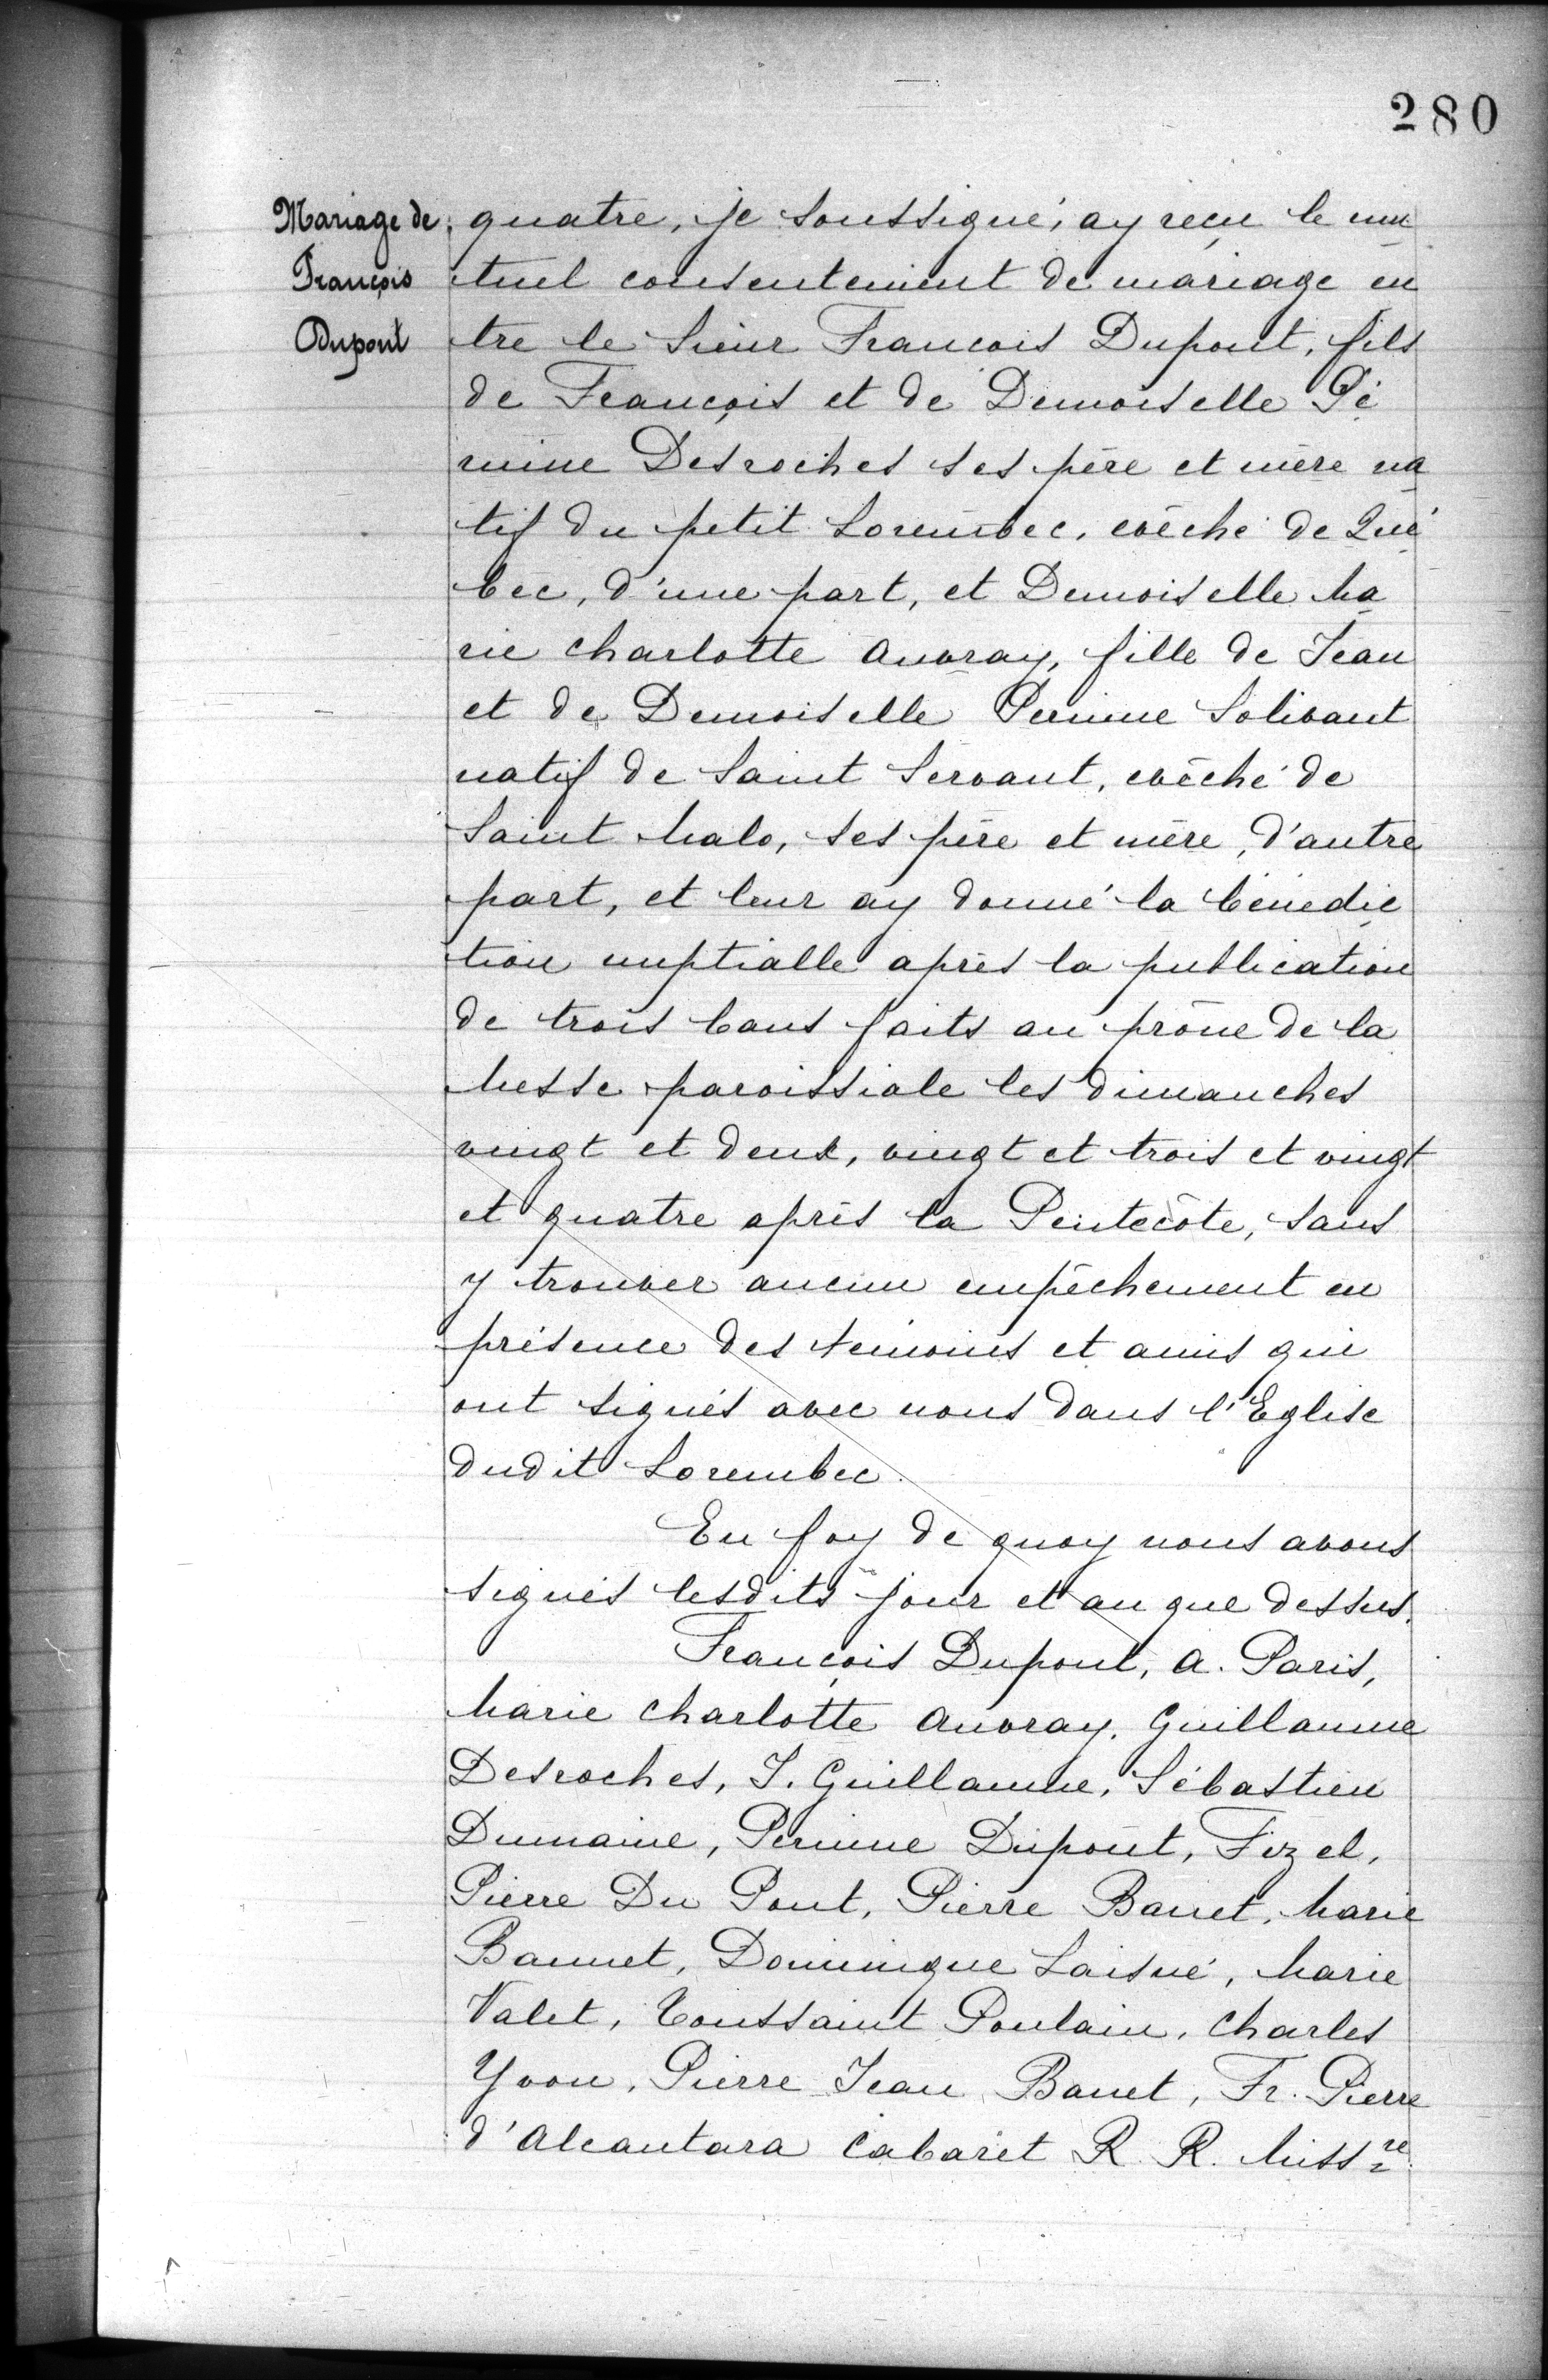 280
Mariage de
François
Dupont
quatre, je soussigné, ay reçu le mu
tuel consentement de mariage en
tre le Sieur Francois Dupont, fils
de François et de Demoiselle Pé
rinne Desroches ses père et mère na
tif du petit Lorembec, evêché de Qué
bec, d'une part, et Demoiselle Ma
rie Charlotte Auvray, fille de Jean
et de Demoiselle Perinne Solivant
natif de Saint Servant, evêché de
Saint Malo, ses père et mère, d'autre
part, et leur ay donné la bénédic
tion nuptialle après la publication
de trois bans faits au prône de la
Messe paroissiale les dimanches
vingt et deux, vingt et trois et vingt
et quatre après la Pentecôte, sans
y trouver aucun empêchement en
présence des temoins et amis qui
ont signés avec nous dans l'Eglise
dudit Lorembec.
En foy de quoy nous avons
signés lesdits jour et an que dessus.
François Dupont, A. Paris,
Marie Charlotte Auvray, Guillaume
Desroches, J. Guillaume, Sébastien
Dumaine, Perinne Dupont, Fizel,
Pierre Du Pont, Pierre Banet, Marie
Bannet, Dominique Laisné, Marie
Valet, Toussaint Poulain, Charles
Yvon, Pierre Jean Banet, Fr. Pierre
d'Alcantara Cabaret R. R. Missre